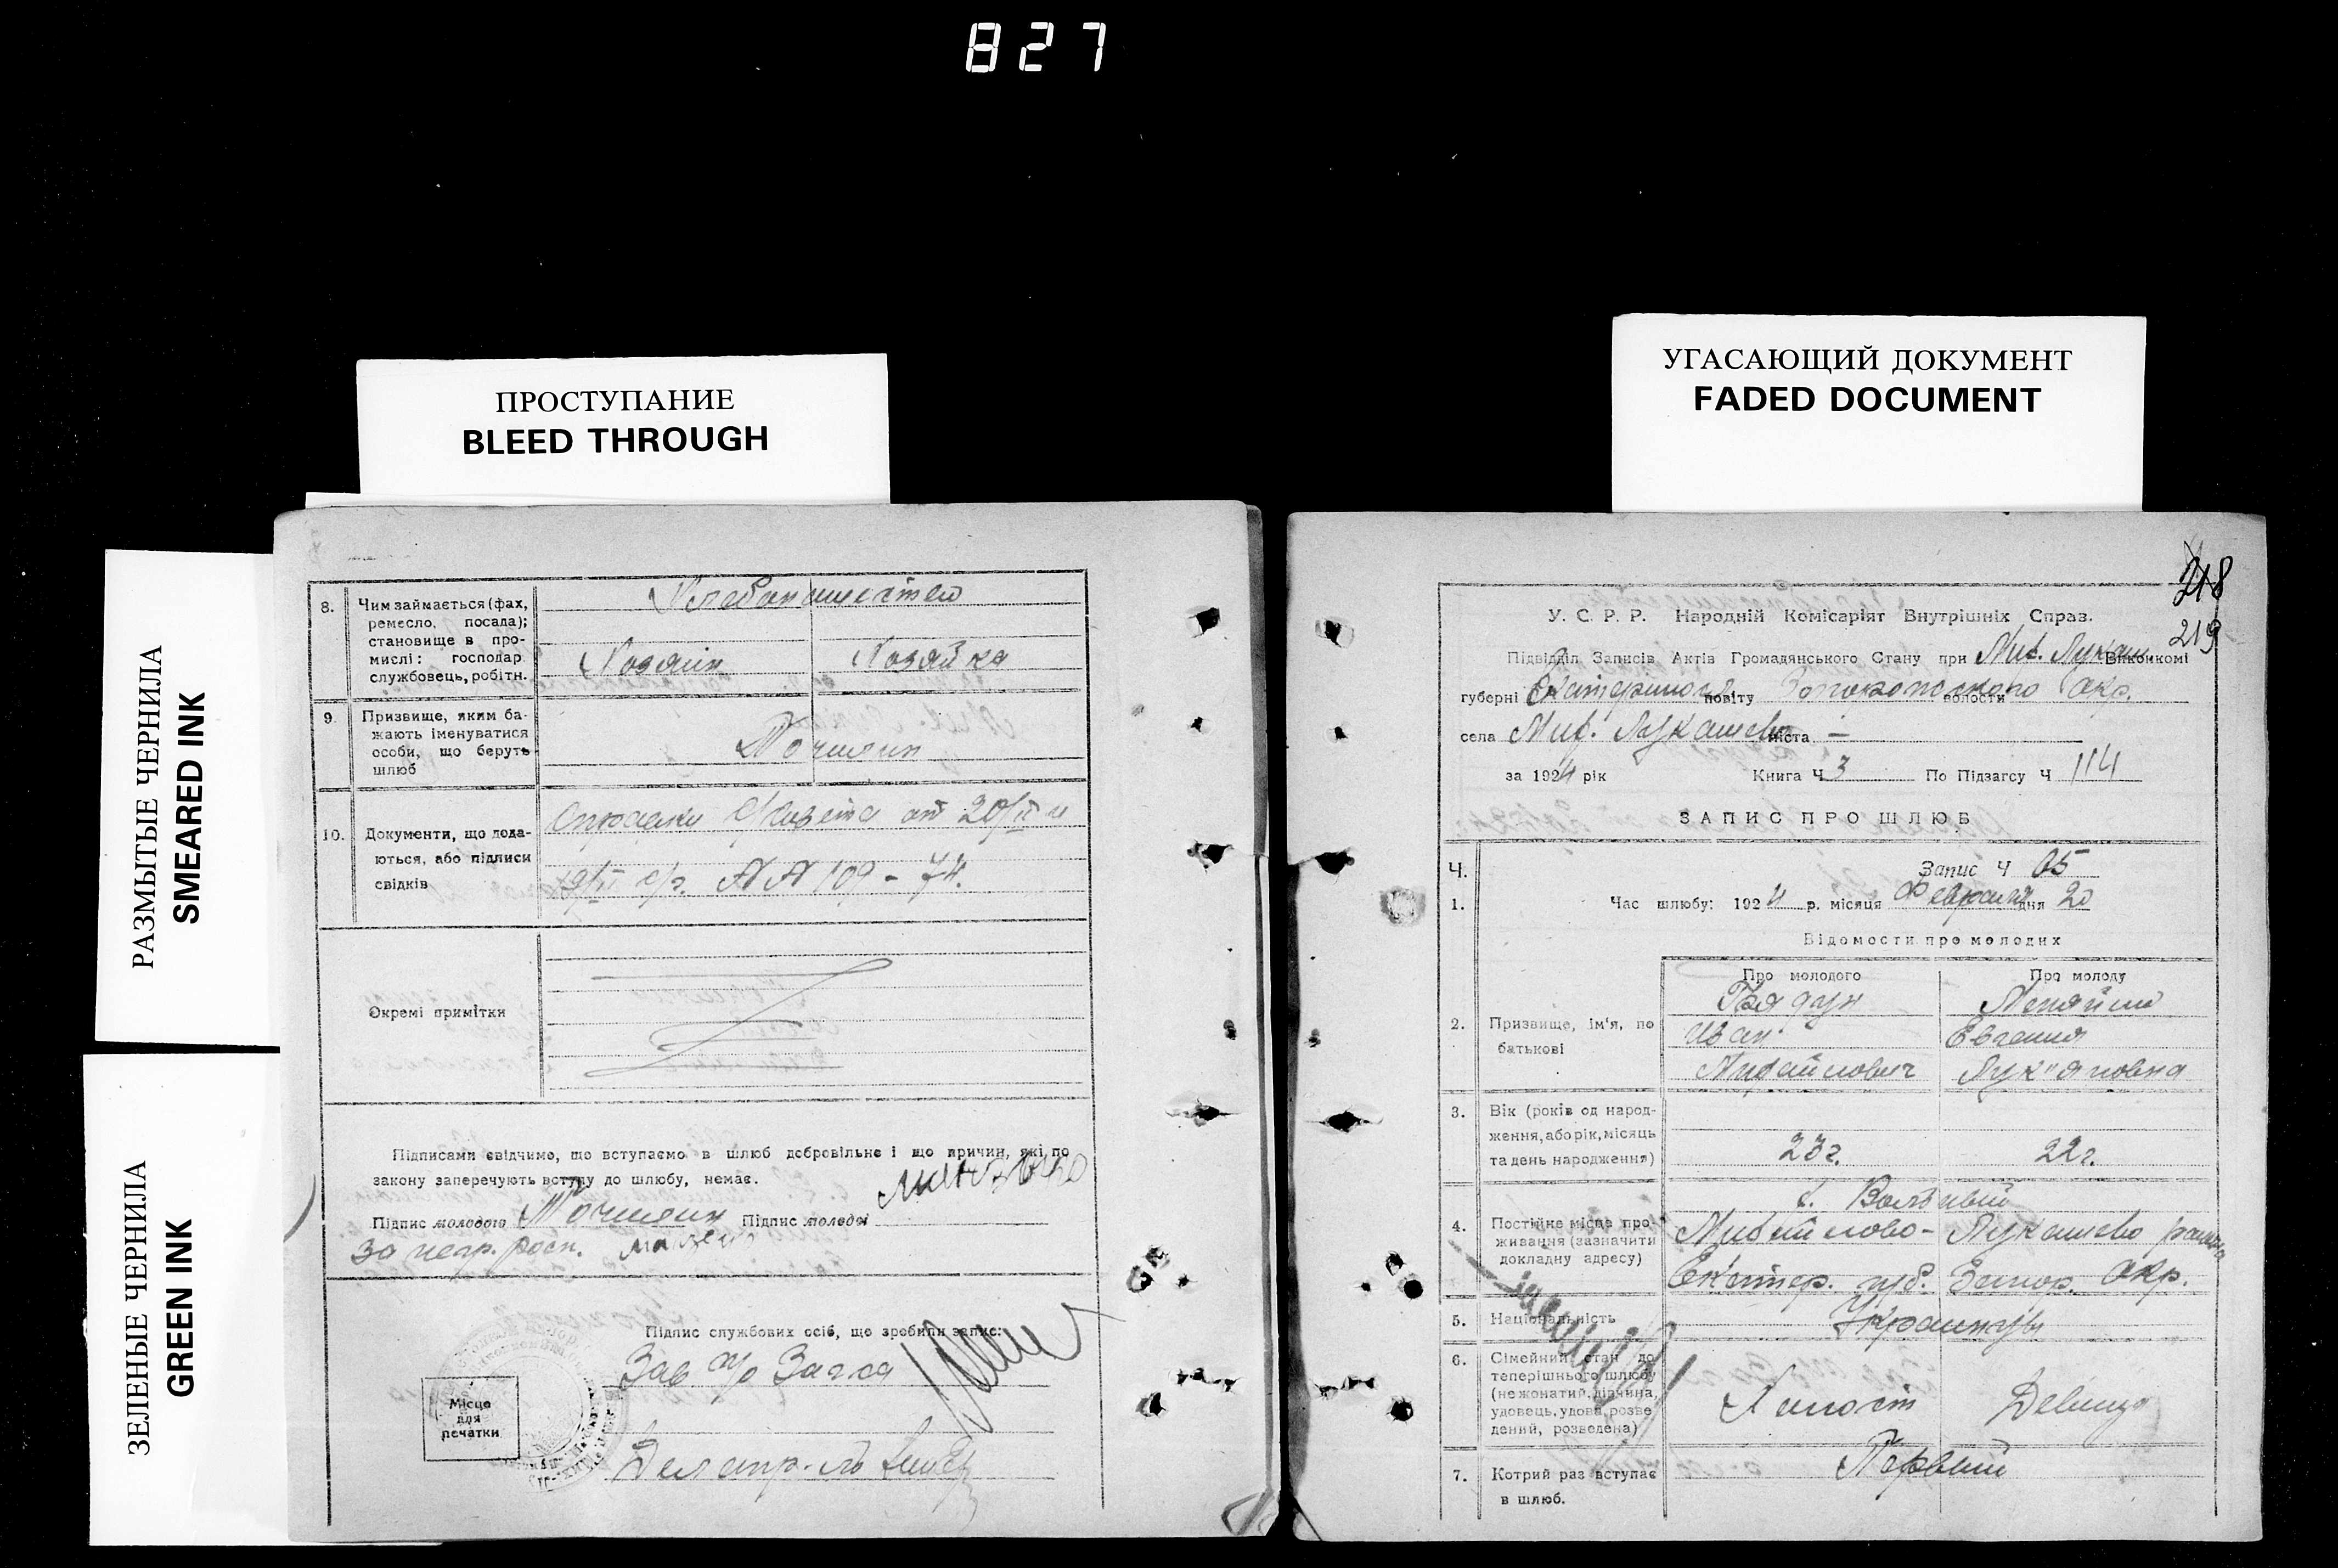 827
ПРОСТУПАНИЕ
BLEED THROUGH
УГАСАЮЩИЙ ДОКУМЕНТ
FADED DOCUMENT
РАЗМЫТЫЕ ЧЕРНИЛА
SMEARED INK
ЗЕЛЕНЫЕ ЧЕРНИЛА
GREEN INK
8. Чим займається (фах,
ремесло, посада);
становище в про-
мислі: господар
службовець, робітн.
Хозяин Хозяйка
9. Призвище, яким ба-
жають іменуватися
особи, що беруть
шлюб
10. Документи, що дода-
ються, або підписи
свідків
от 20/II и
19/II с/г. №№ 109 - 74.
Окремі примітки
Підписами свідчимо, що вступаємо в шлюб добровільне і що причин, які по
закону заперечують вступу до шлюбу, немає.
Підпис молодого Підпис молодої
за негр. росп.
Підпис службових осіб, що зробили запис:
Зав п/о Загса
Місце
для
печатки
218
219
У. С. Р. Р. Народній Комісаріят Внутрішніх Справ.
Підвідділ Записів Актів Громадянського Стану при Мих. Лукаш. Виконкомі
губерні Екатериносл. повіту волости Окр.
села Мих. Лукашево міста —
за 1924 рік Книга Ч 3 По Підзагсу Ч 114
ЗАПИС ПРО ШЛЮБ
Ч. Запис Ч 65
1. Час шлюбу: 1924 р. місяця Февраля дня 20
Відомости про молодих
Про молодого Про молоду
2. Призвище, ім'я, по
батькові
Иван Евгения
Михайлович Лук"яновна
3. Вік (років од народ-
ження, або рік, місяць
та день народження)
23г. 22г.
4. Постійне місце про-
живання (зазначити
докладну адресу)
Михайлово- Лукашево района
Екатер. губ. Запор. Окр.
5. Національність
Украинцы
6. Сімейний стан до
теперішнього шлюбу
(не жонатий, дівчина,
удовець, удова, розве
дений, розведена)
Холост Девица
7. Котрий раз вступає
в шлюб.
Первый